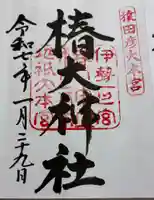 猿田彦大本宮
伊勢一宮
椿大神社
地祇大本宮
令和七年一月二十九日